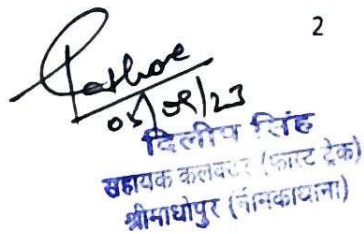 2
05/09/23
दिलीप सिंह
सहायक कलक्टर (फास्ट ट्रेक)
श्रीमाधोपुर (नीमकाथाना)